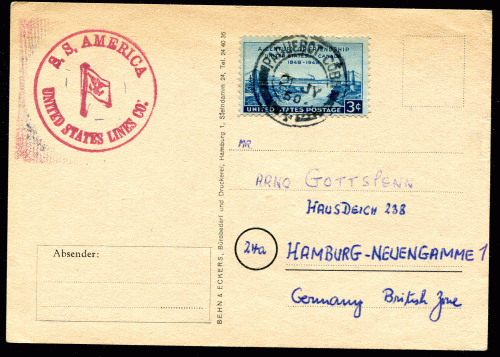 S.S. AMERICA
UNITED STATES LINES CO.
A CENTURY OF FRIENDSHIP
UNITED STATES CANADA
1848-1948
UNITED STATES POSTAGE 3¢
PAQUEBOT
JY
50
BEHN & ECKERS, Bürobedarf und Druckerei, Hamburg 1, Steindamm 24, Tel. 24 40 35
MR.
ARNO GOTTSPENN
HAUSDEICH 238
24a HAMBURG-NEUENGAMME 1
Germany British Zone
Absender: